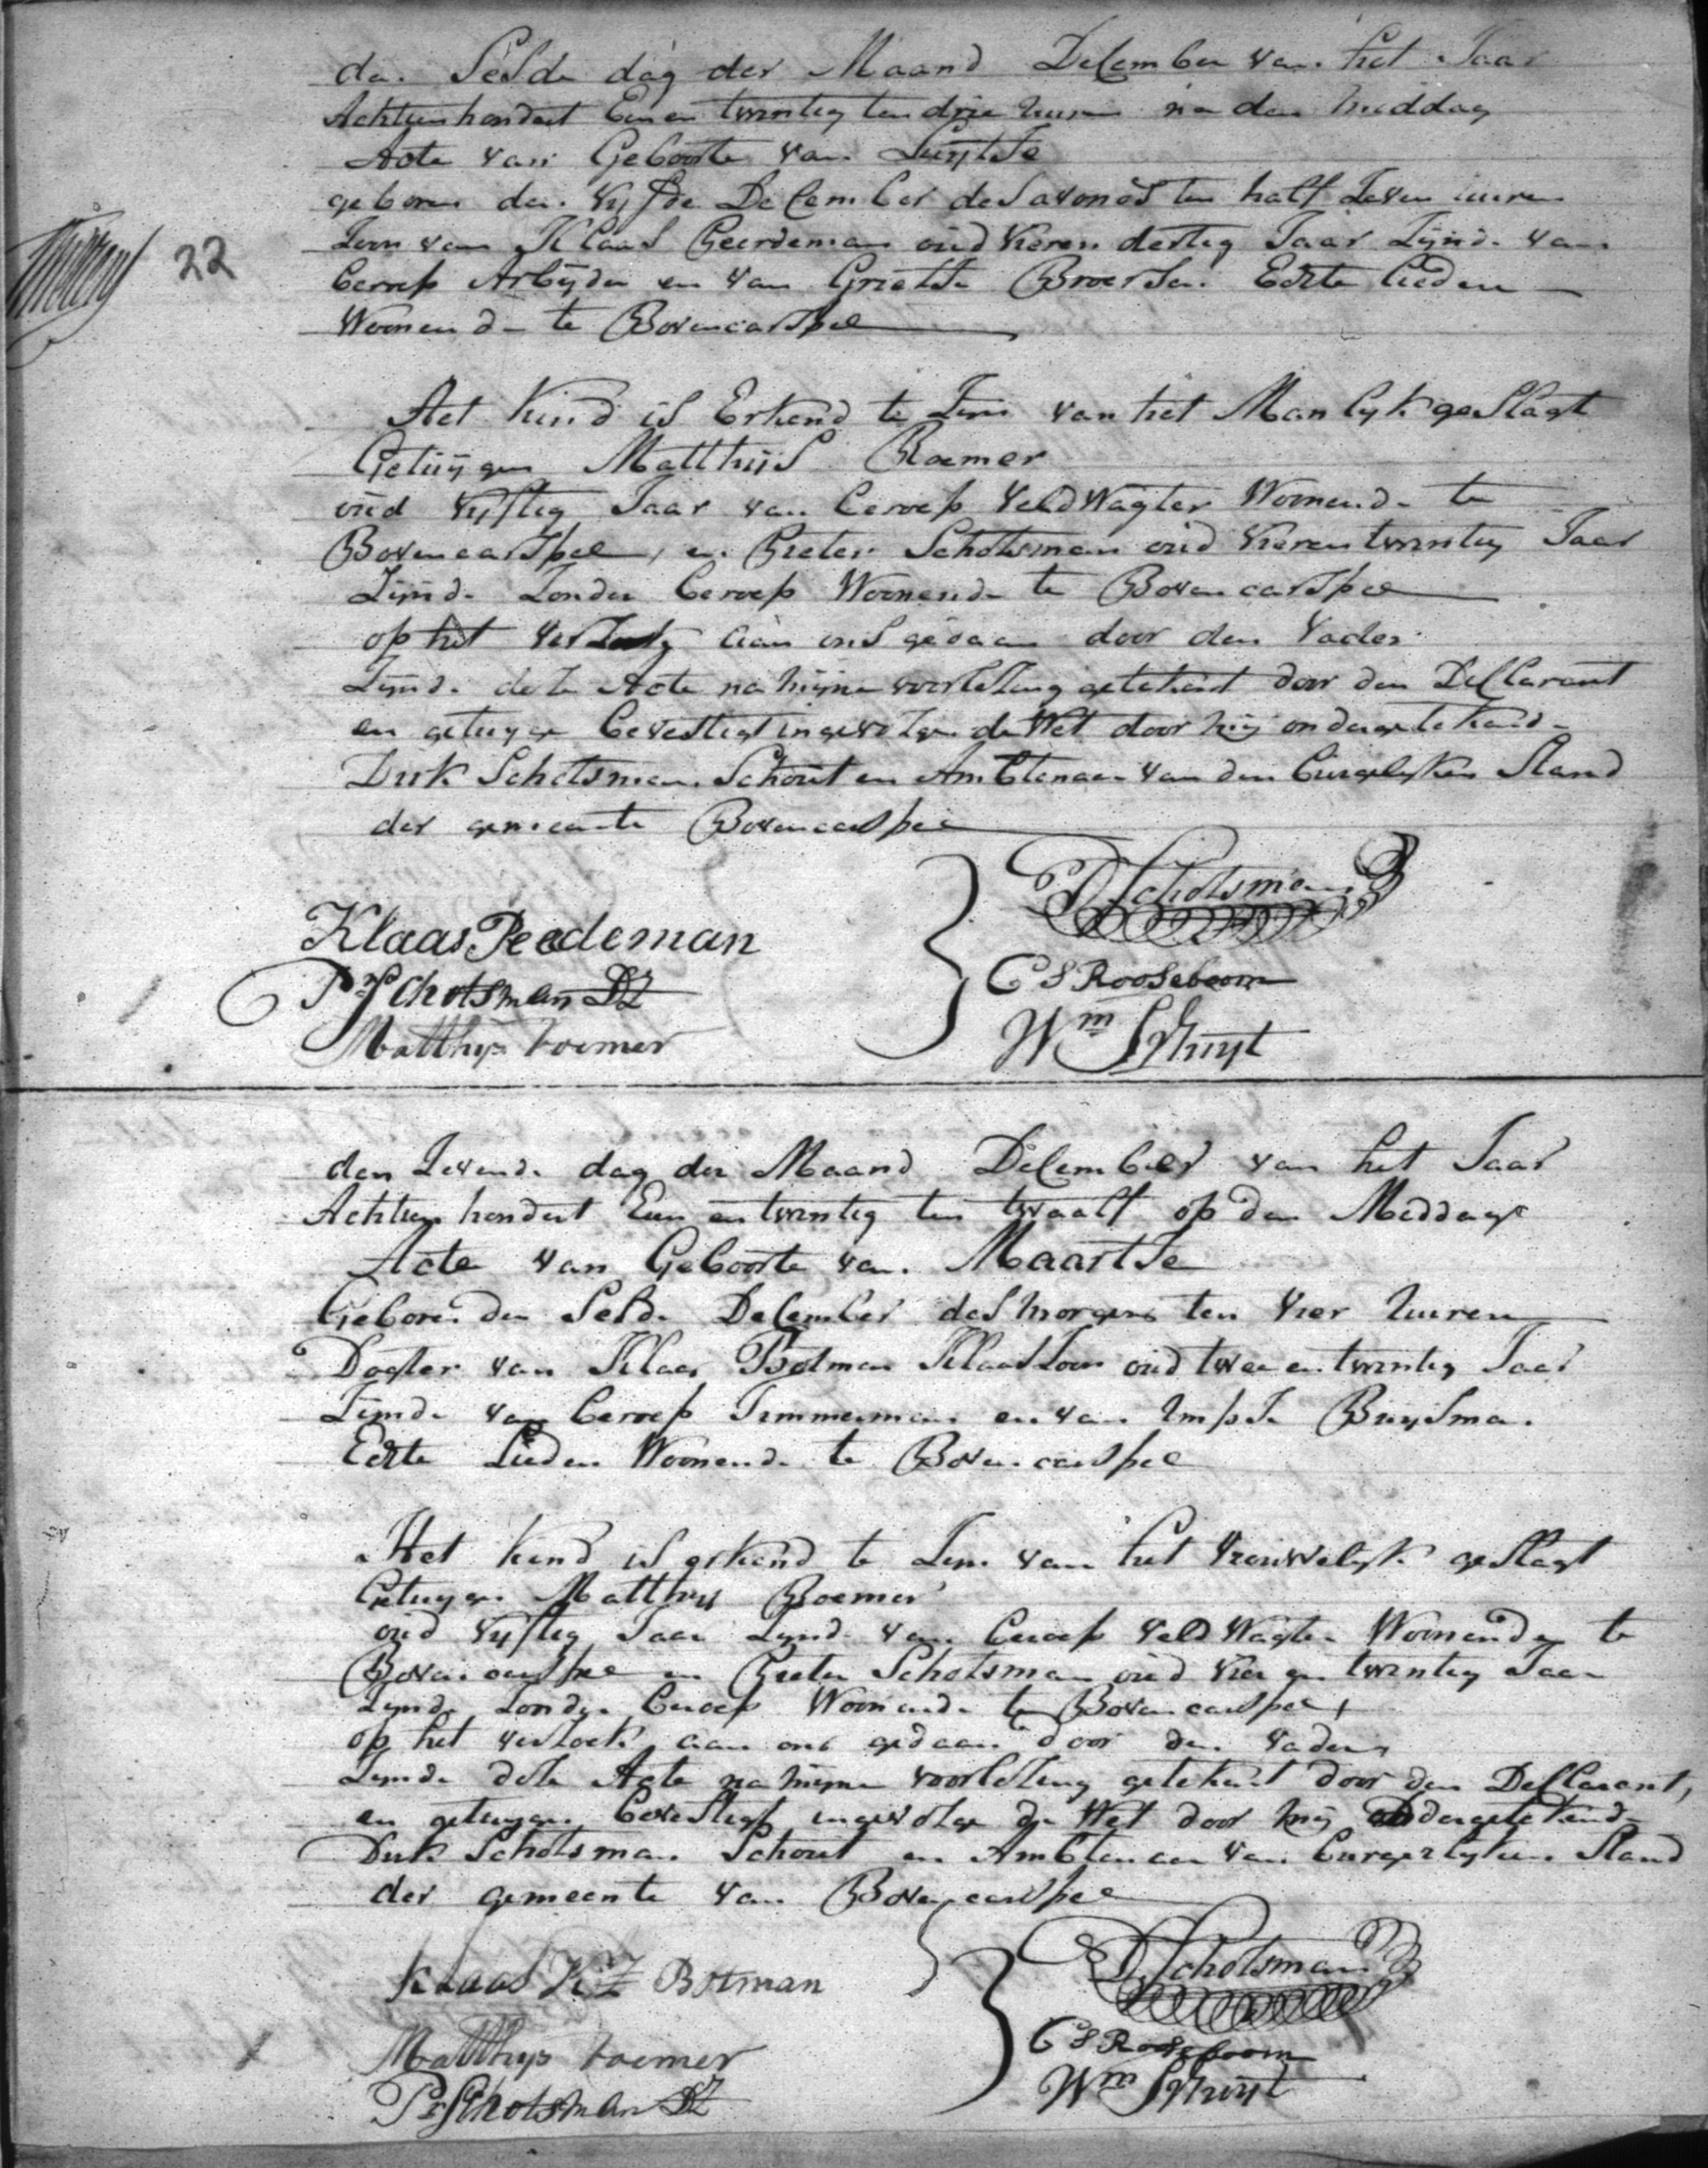 den Sesde dag der Maand December van het Jaar
Achttienhondert Een en twintig ten drie uuren na den Middag
Acte van Geboorte van Luijtse
geboren den vyfde December des avonds ten half Zeven uuren
22 Zoon van Klaas Peerdeman oud vier en dertig Jaar Zijnde van
beroep Arbeijder en van Grietse Broerse Echte lieden
Woonende te Bovencarspel
Het Kind is Erkend te Zijn van het Manlyk geslagt
Getuijgen Matthijs Roemer
oud vyftig Jaar van beroep veldWagter Woonende te
Bovencarspel, en Pieter Schotsman oud vier en twintig Jaar
Zijnde Zonder beroep Woonende te Bovencarspel
op het aan ons gedaan door den vader
Zijnde deze Acte na hijne voorlezing getekent door den Declarant
en getuyge bevestigt ingevolge de Wet door mij ondergetekende
Dirk Schotsman Schout en Ambtenaar van den burgelyken Stand
der gemeente Bovencarspel
D Schotsman
Klaas Peerdeman
C S Rooseboom
Pr Schotsman DZ
Wm Sluijt
Matthys Roemer
den Zevende dag der Maand December van het Jaar
Achttien hondert Een en twintig ten twaalf op den Middag
Acte van Geboorte van Maartse
Geboren den Sesde December des morgens ten vier uuren
Dogter van Klaas Botman Klaaszoon oud twee en twintig Jaar
Zijnde van beroep Timmerman en van Impse Bruijsma
Echte Lieden Woonende te Bovencarspel
Het kind is erkend te Zijn van het vrouwelyk geslagt
Getuygen Matthys Roemer
oud vyftig Jaar Zynde van beroep veld Wagter Woonende te
Bovencarspel en Pieter Schotsman oud vier en twintig Jaar
Zynde Zonder beroep Woonende te Bovencarspel
op het verzoek aan ons gedaan door den vader
Zynde deze Acte na hijne voorlezing getekent door den Declarant,
en getuygen bevestigt ingevolge de Wet door mij ondergetekende
Dirk Schotsman Schout en Ambtenaar van burgerlyken Stand
der gemeente van Bovencarspel
D Schotsman
Klaas KZ Botman
C S Rooseboom
Matthys Roemer
Wm Sluijt
Pr Schotsman DZ